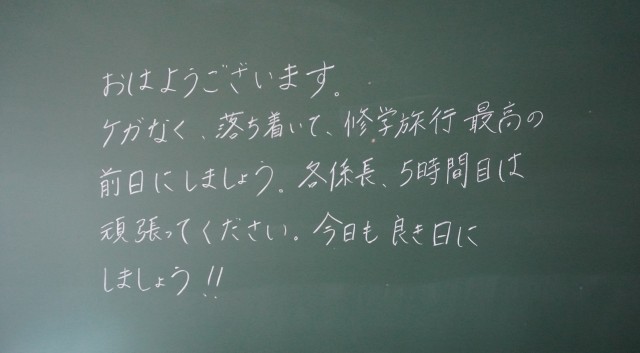 おはようございます。
ケガなく、落ち着いて、修学旅行最高の
前日にしましょう。各係長、5時間目は
頑張ってください。今日も良き日に
しましょう!!